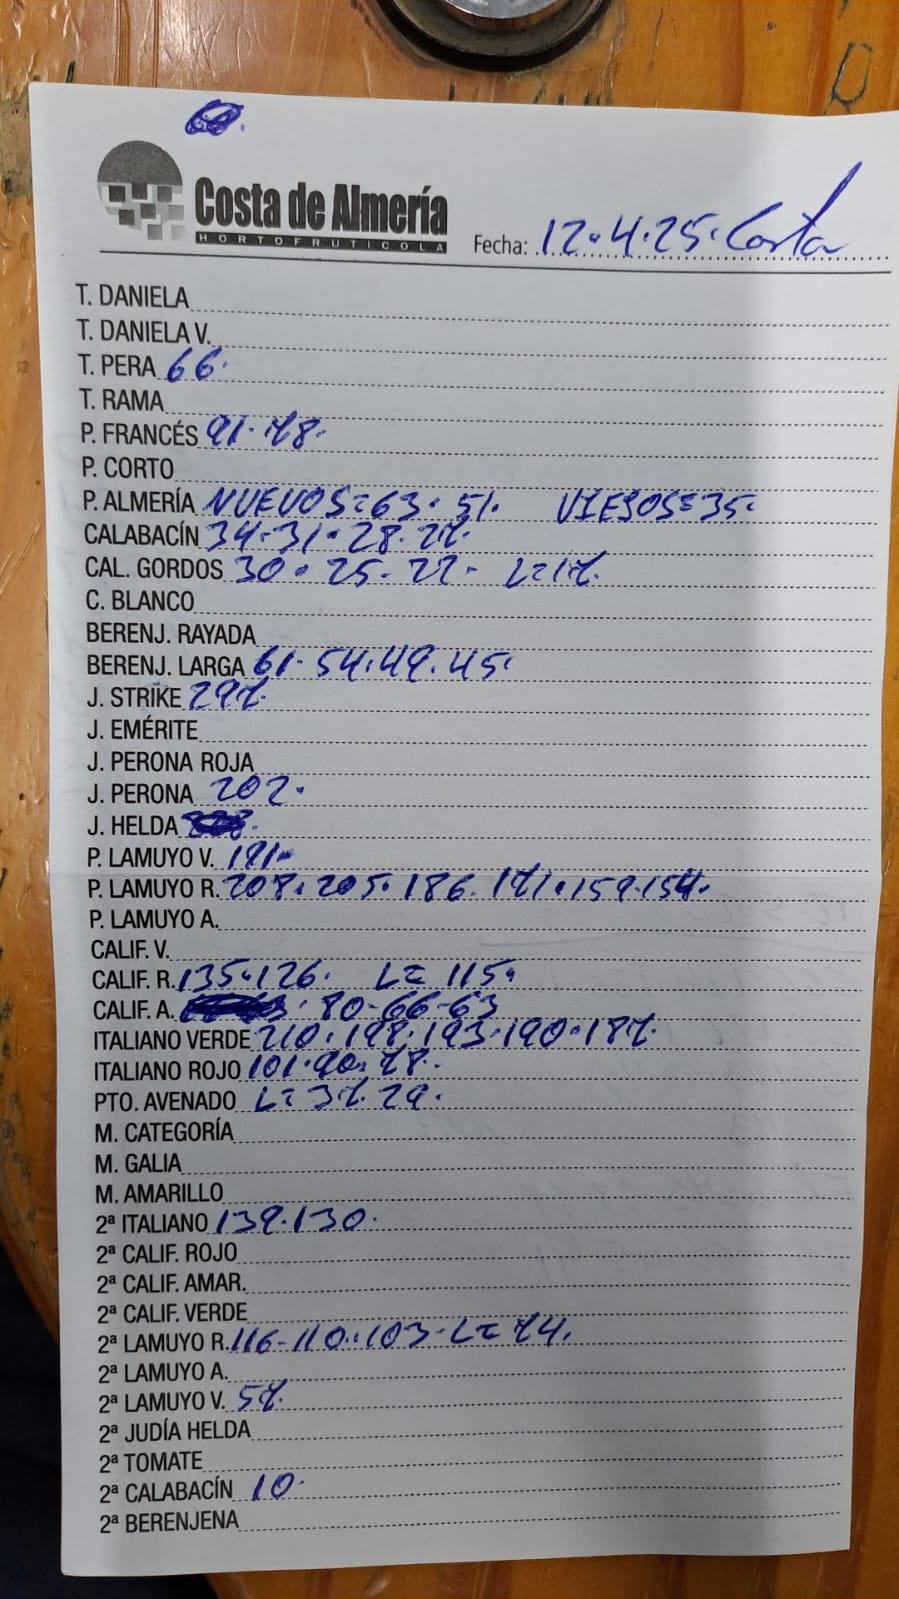 Costa de Almería
HORTOFRUTICOLA
Fecha: 12.4.25. Costa
T. DANIELA
T. DANIELA V.
T. PERA 66.
T. RAMA
P. FRANCÉS 91. 78.
P. CORTO
P. ALMERÍA NUEVOS=63. 51. VIEJOS=35.
CALABACÍN 34.31.28.27.
CAL. GORDOS 30. 25. 22. L=17.
C. BLANCO
BERENJ. RAYADA
BERENJ. LARGA 61. 54.49.45.
J. STRIKE 297.
J. EMÉRITE
J. PERONA ROJA
J. PERONA 202.
J. HELDA
P. LAMUYO V. 191.
P. LAMUYO R. 205. 186. 171. 159.154.
P. LAMUYO A.
CALIF. V.
CALIF. R. 135.126. L= 115.
CALIF. A. 80-66-63
ITALIANO VERDE 210. 198. 193. 190. 187.
ITALIANO ROJO 101.90. 78.
PTO. AVENADO L= 37. 29.
M. CATEGORÍA
M. GALIA
M. AMARILLO
2ª ITALIANO 139.130.
2ª CALIF. ROJO
2ª CALIF. AMAR.
2ª CALIF. VERDE
2ª LAMUYO R. 116-110..103-L= 74.
2ª LAMUYO A.
2ª LAMUYO V. 57.
2ª JUDÍA HELDA
2ª TOMATE
2ª CALABACÍN 10.
2ª BERENJENA